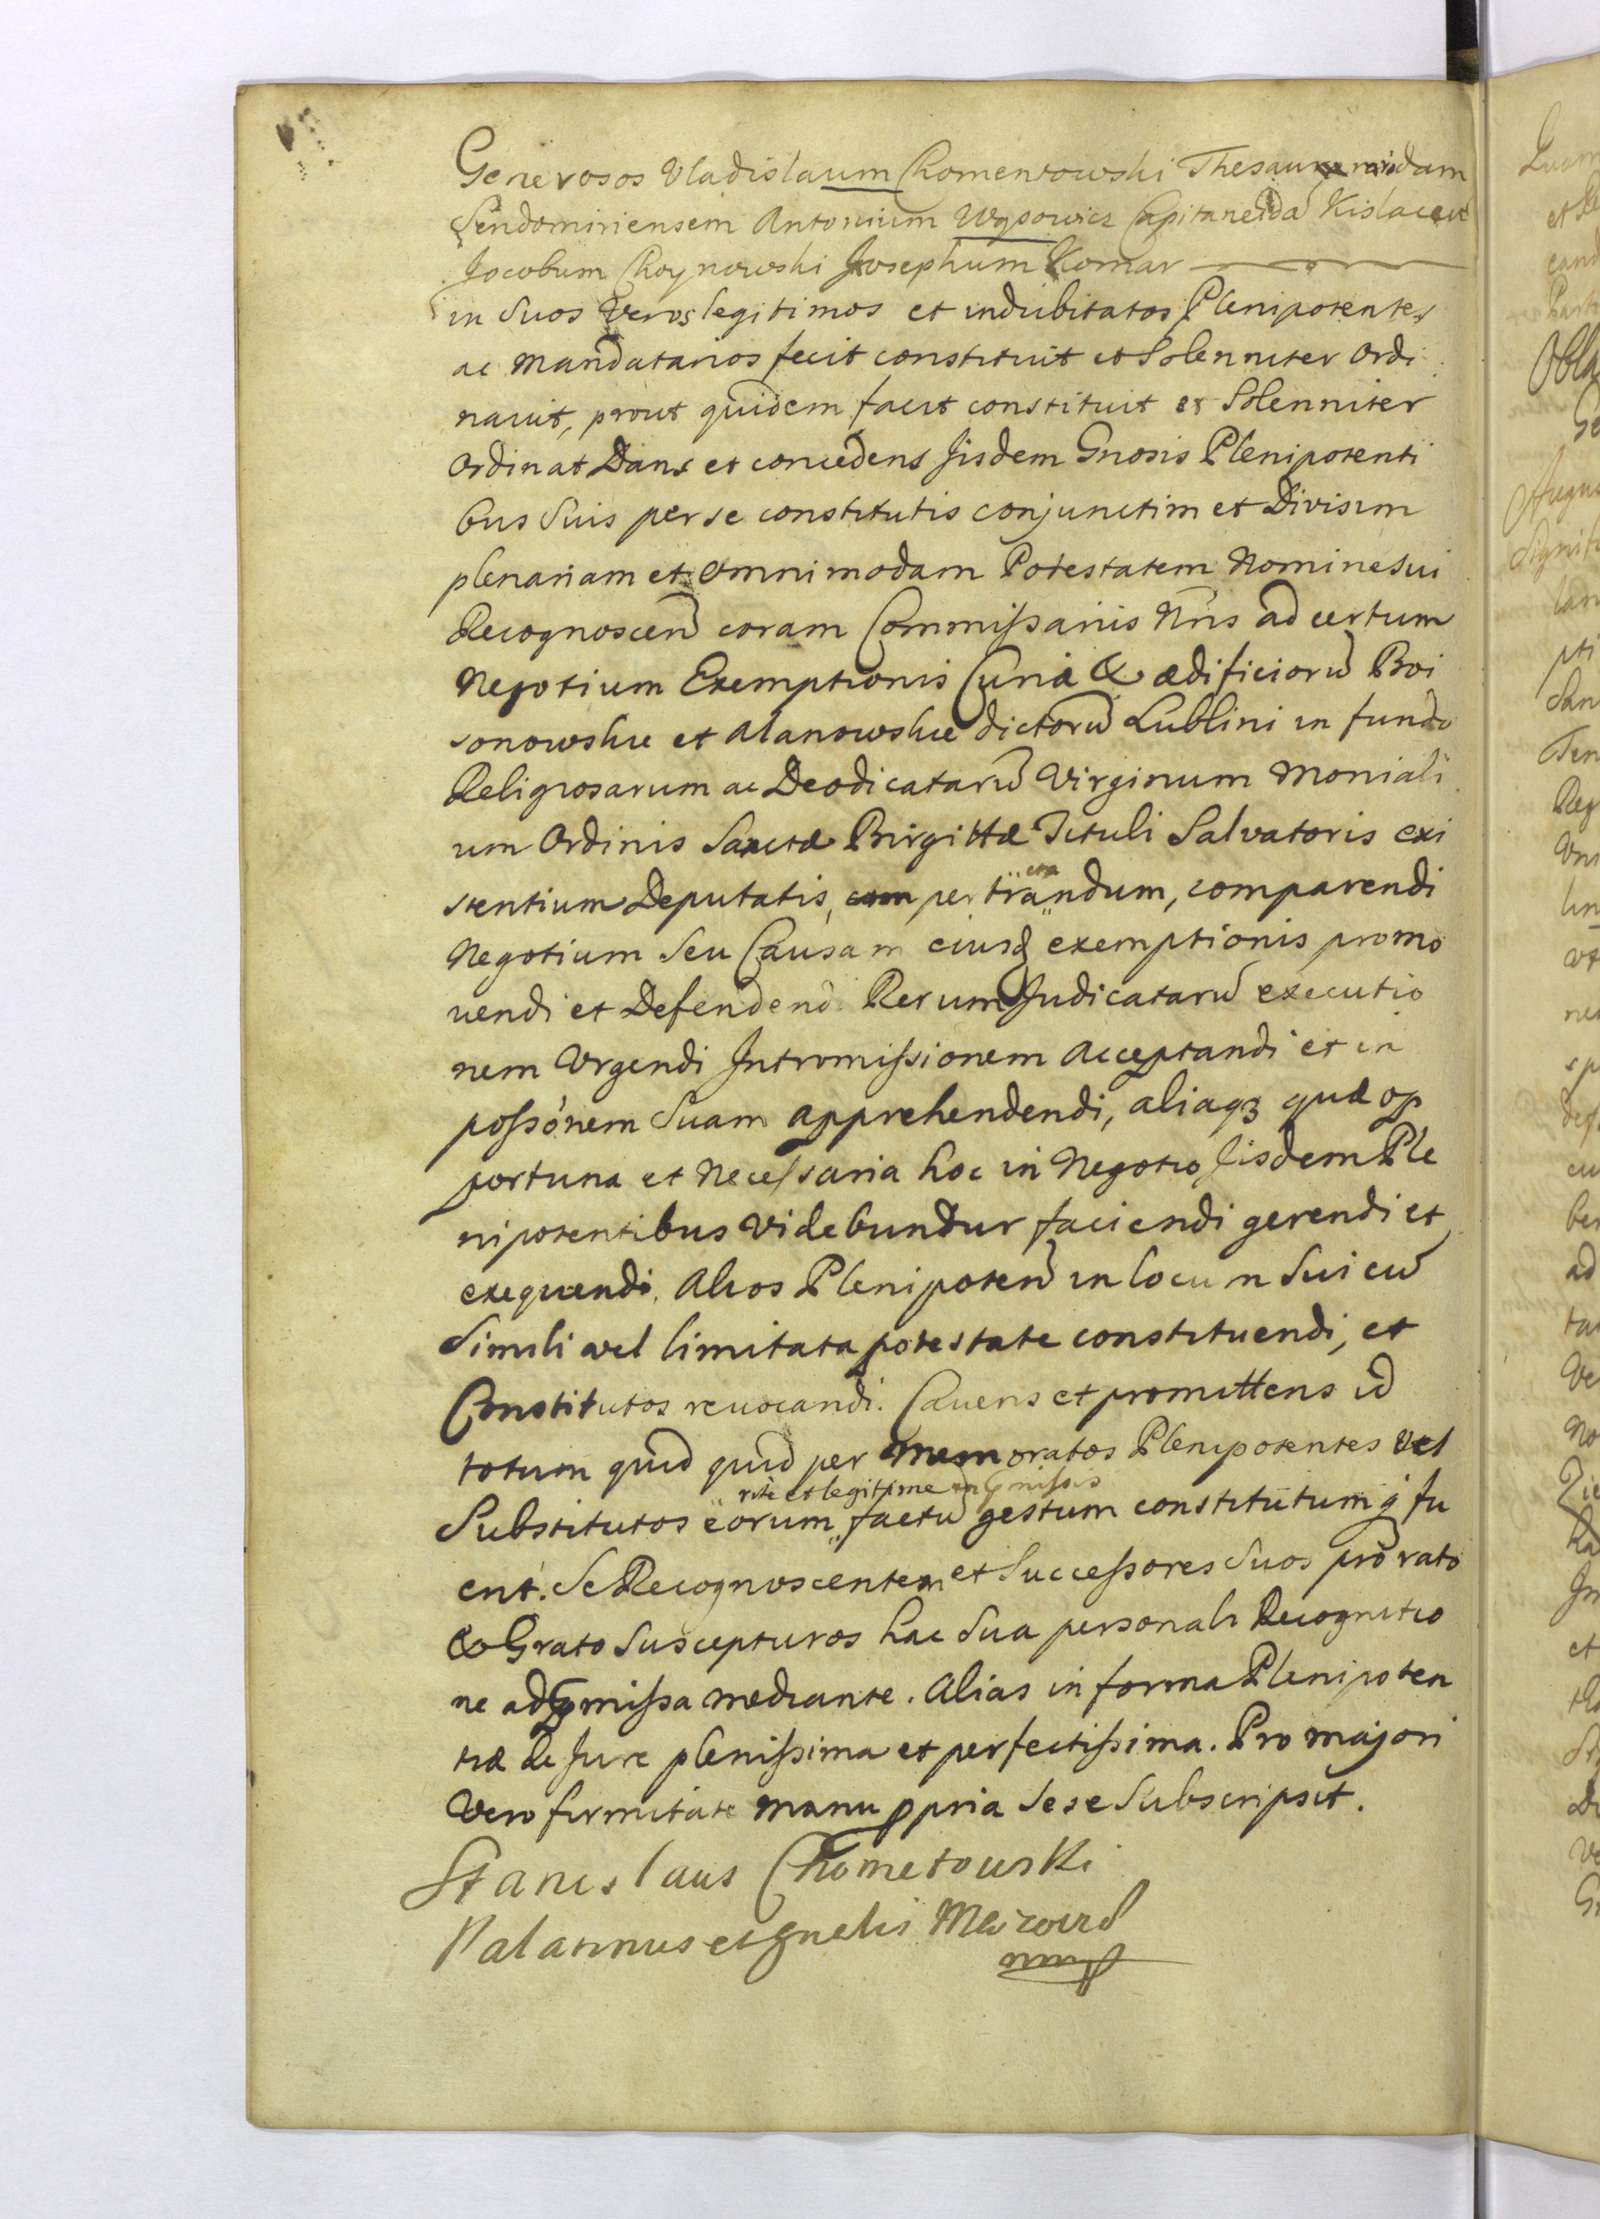 Generosos Vladislaum Chomentowski Thesauraridam
Sendomiriensem Antonium Capitaneida
Jacobum Choynowski Josephum Komar
in Suos Veros legitimos et indubitatos Plenipotentes
ac Mandatarios fecit constituit et Solenniter Ordi
navit, prout quidem facit constituit et Solenniter
Ordinat Dans et concedens Jisdem Gnosis Plenipotenti
bus Suis per se constitutis conjunctim et Divisim
plenariam et Omnimodam Potestatem Nomine Sui
Recognoscen coram Commissariis Nris ad certum
Negotium Exemptionis Curiæ & ædificiorũ Boi
et dictorũ Lublini in fundo
Religiosarum ac Deodicatarũ Virginum Moniali
um Ordinis Sanctæ Birgittæ Tituli Salvatoris exi
stentium Deputatis, per tractandum, comparendi
Negotium Seu Causam eiusq exemptionis promo
uendi et Defenden Rerum Judicatarũ executio
nem Urgendi Intromissionem Acceptandi et in
possonem Suam apprehendendi, aliaqʒ quæ op
portuna et Necessaria hoc in Negotio Jisdem Ple
nipotentibus Videbuntur faciendi gerendi et
exequendi, Alios Plenipoten in locum Sui cũ
Simili vel limitata potestate constituendi, et
Constitutos reuocandi. Cavens et promittens id
totum quid quid per Memoratos Plenipotentes Vel
rite et legitime in pmissis
Substitutos eorum factũ gestum constitutumq fu
erit. Se Recognoscentem et Successores Suos pro rato
& Grato Suscepturos hac Sua personali Recognitio
ne ad pmissa mediante. Alias in forma Plenipoten
tiæ de Jure plenissima et perfectissima. Pro majori
Vero firmitate manu ppria Sese Subscripsit.
Stanislaus Chometowski
Palatinus et Gnalis Mazovid
mmp